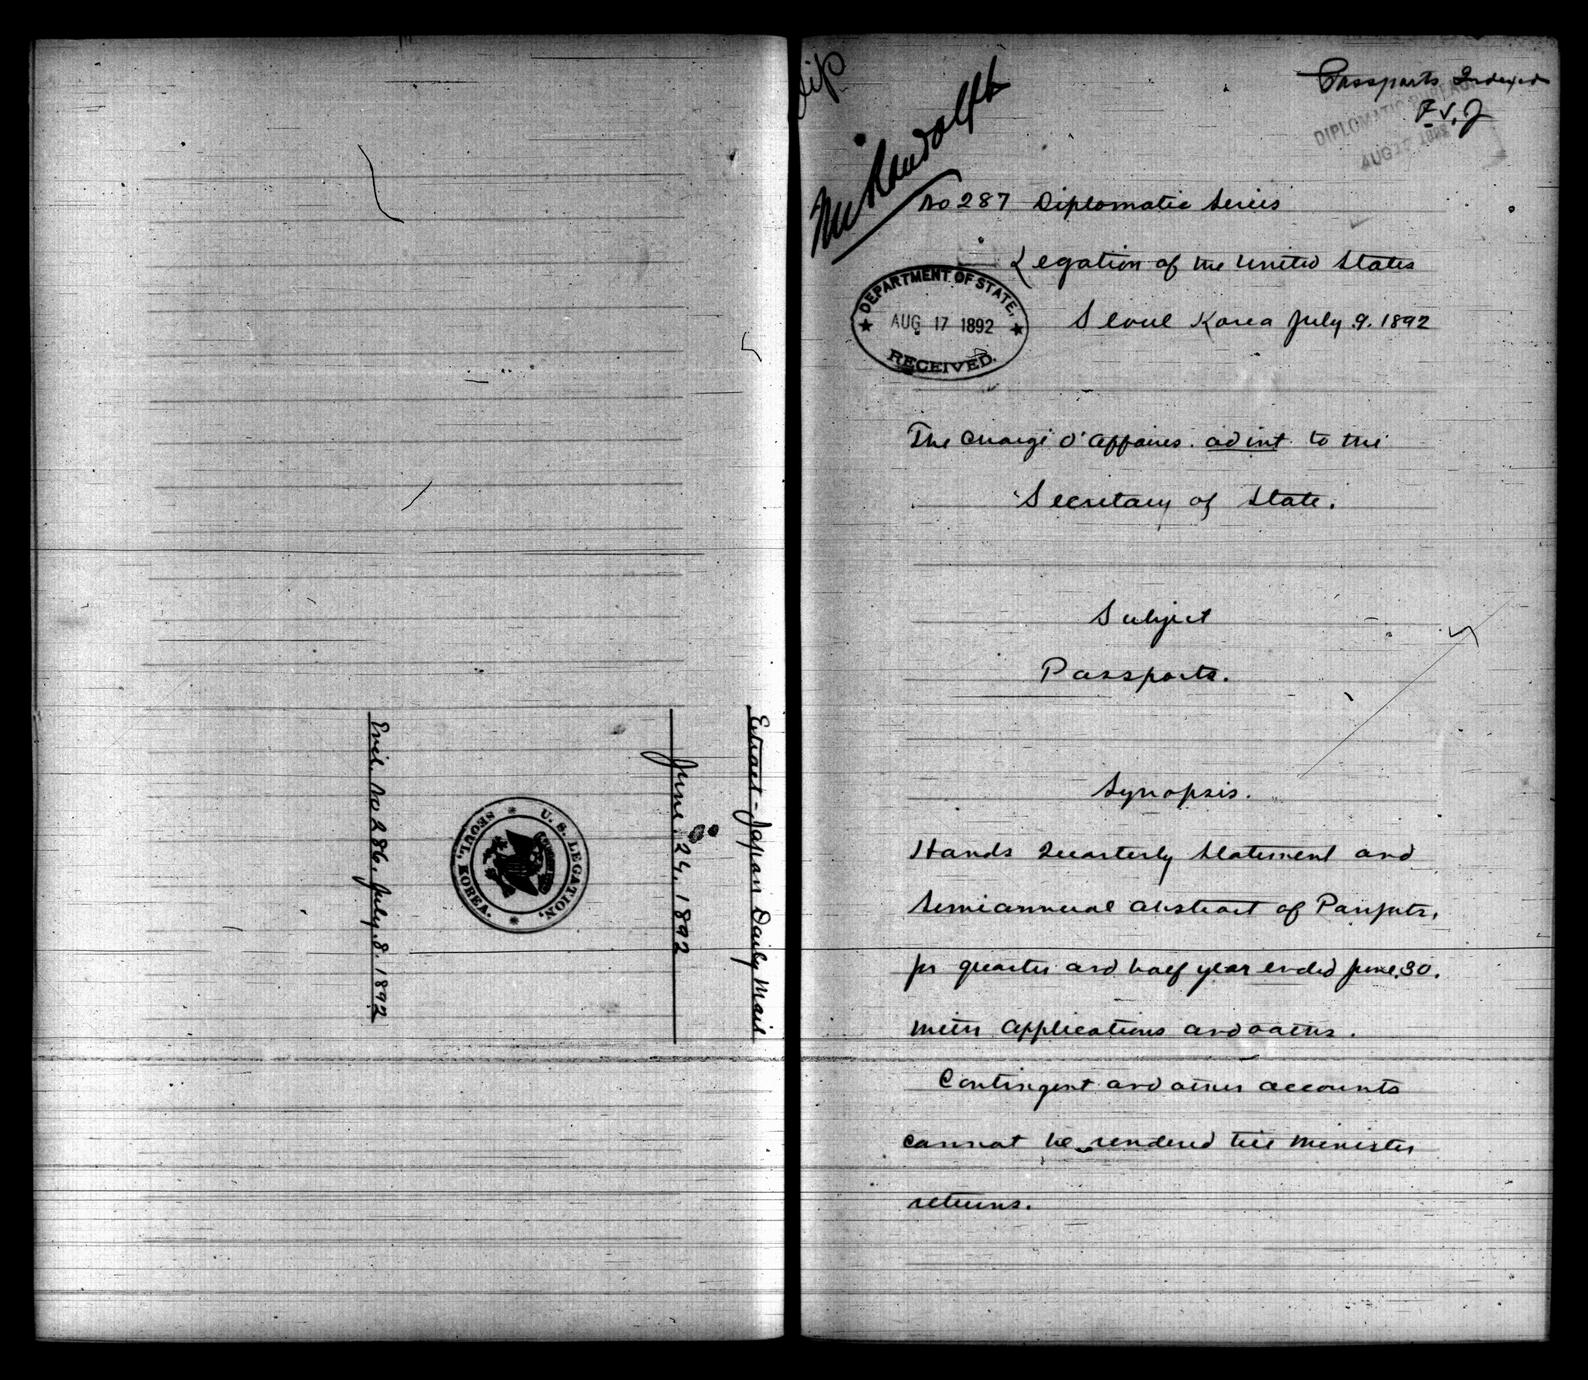 Extract - Japan Daily Mail
June 24. 1892
U. S. LEGATION,
SEOUL, KOREA.
Encl. No 286. July. 8. 1892
Dip
Mr Randolph
Passports Indexed
F.V.J
DIPLOMATIC BUREAU
AUG 1892
No 287 Diplomatic Series
Legation of the United States
Seoul Korea July 9. 1892
DEPARTMENT OF STATE,
AUG 17 1892
RECEIVED.
The Chargé d'Affaires. ad int. to the
Secretary of State.
Subject
Passports.
Synopsis.
Hands Quarterly Statement and
Semiannual abstract of Passpts,
for quarter and half year ended June.30.
with Applications and oaths.
Contingent and other accounts
cannot be rendered till Minister
returns.